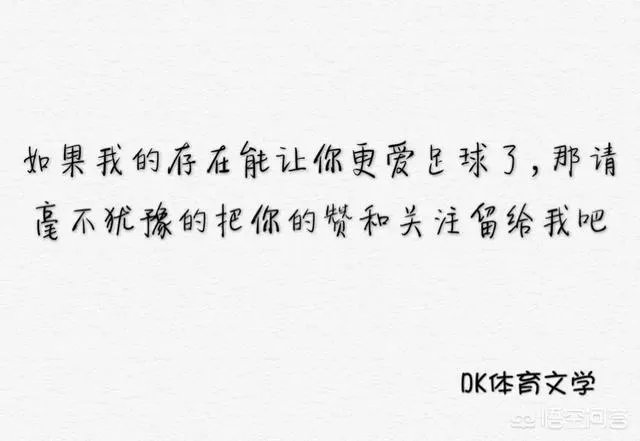 如果我的存在能让你更爱足球了,那请
毫不犹豫的把你的赞和关注留给我吧
DK体育文学
悟空问答